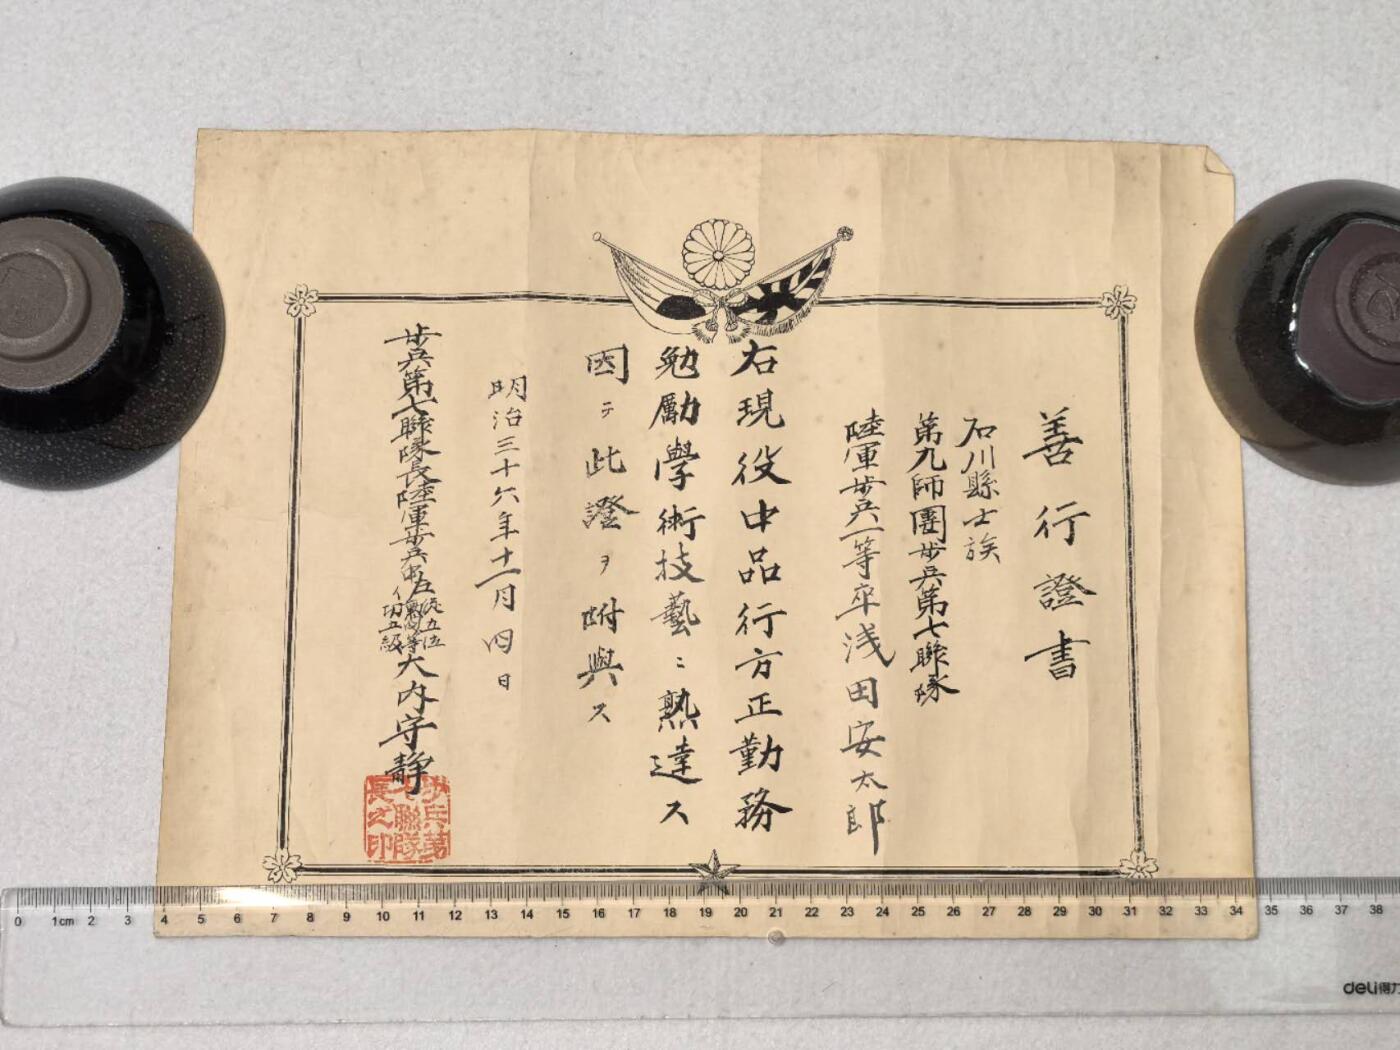 善行證書
石川縣士族
第九師團步兵第七聯隊
陸軍步兵一等卒淺田安太郎
右現役中品行方正勤務
勉勵學術技藝ニ熟達ス
因テ此證ヲ附與ス
明治三十六年十一月四日
步兵第七聯隊長陸軍步兵大佐
從五位
勳四等
功五級
大內守靜
步兵第
七聯隊
長之印
0 1cm 2 3 4 5 6 7 8 9 10 11 12 13 14 15 16 17 18 19 20 21 22 23 24 25 26 27 28 29 30 31 32 33 34 35 36 37 38
deli得力